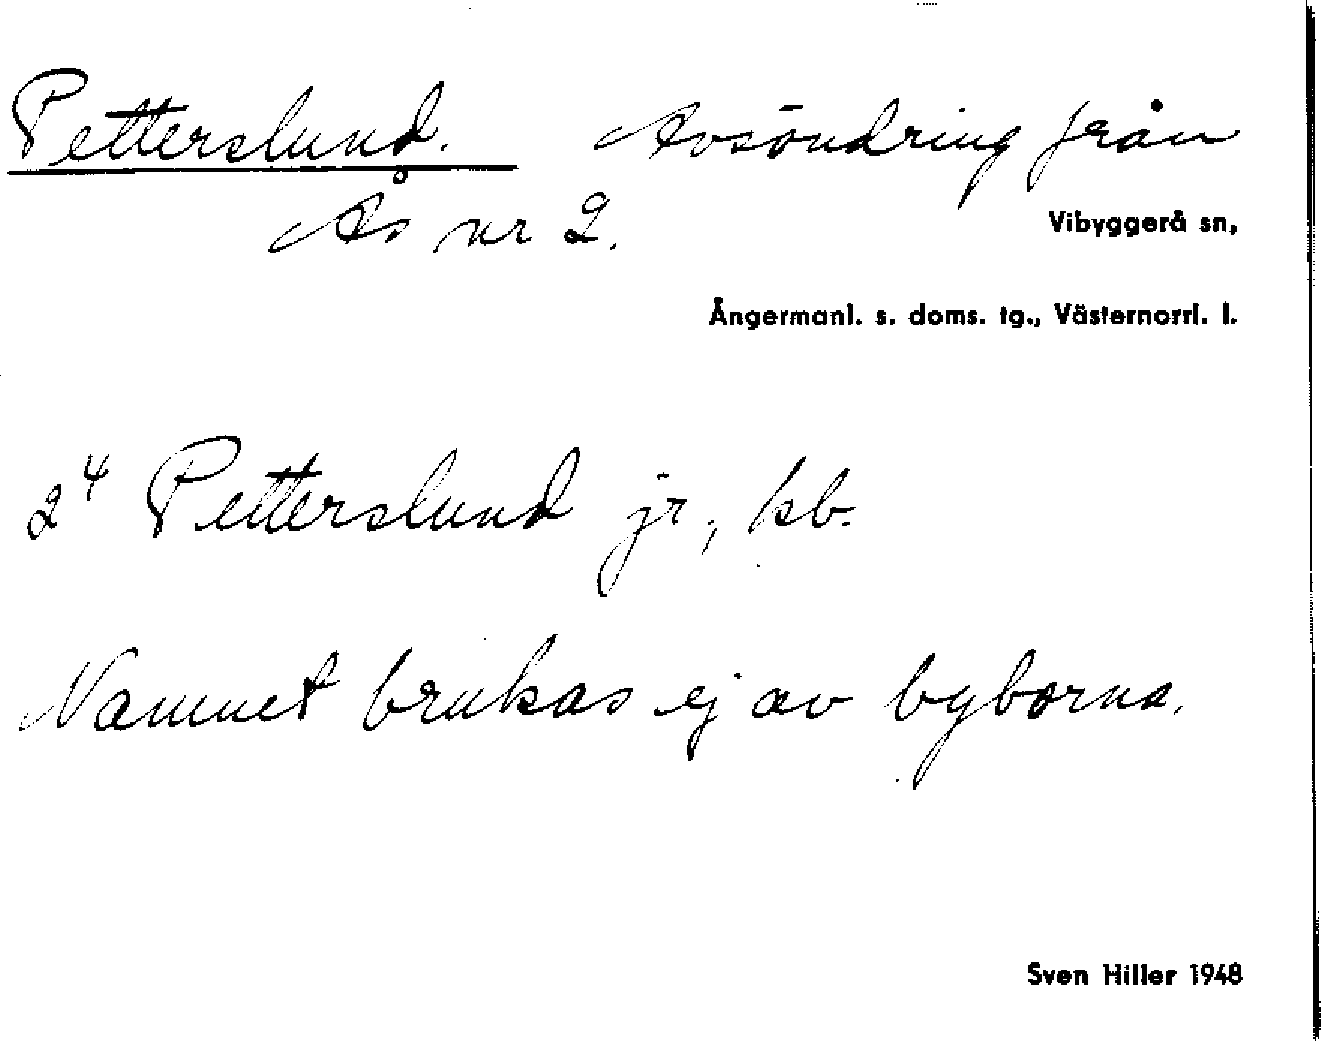 Petterslund. Avsöndring från
Ås nr 2.
Vibyggerå sn,
Ångermanl. s. doms. tg., Västernorrl. l.
2⁴ Petterslund jr, kb.
Namnet brukas ej av byborna.
Sven Hiller 1948